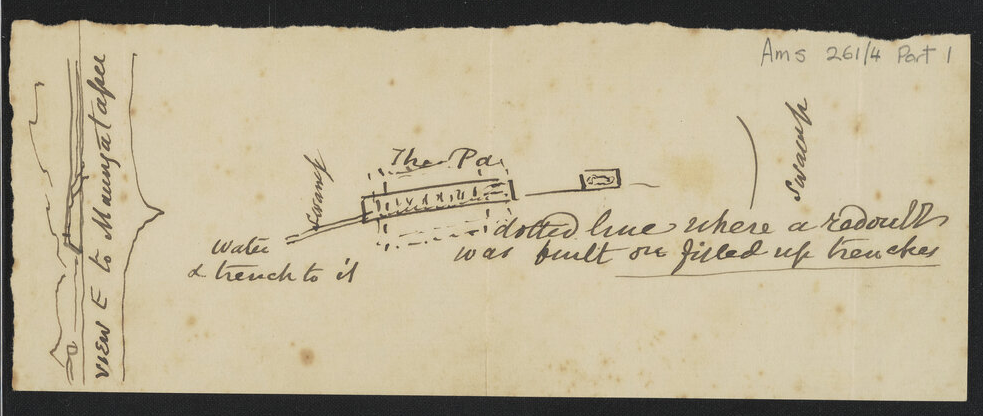 Ams 261/4 Part 1
view E to Maungatapere
Swamp
The Pa
Swamp
dotted line where a redoubt
was built on filled up trenches
Water
& trench to it